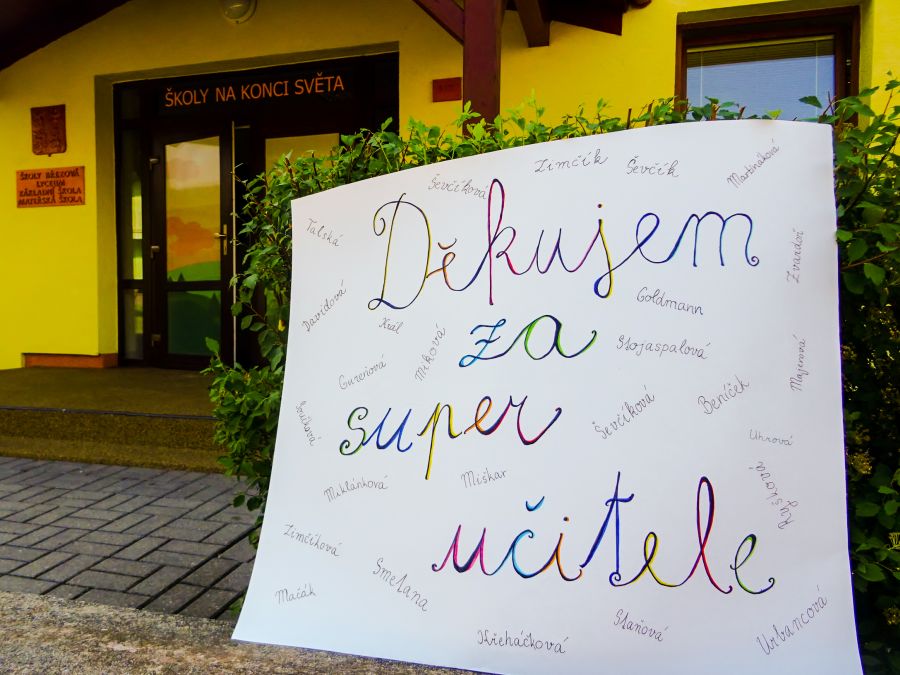 ŠKOLY NA KONCI SVĚTA
ŠKOLY BŘEZOVÁ
LYCEUM
ZÁKLADNÍ ŠKOLA
MATEŘSKÁ ŠKOLA
Zimčík
Ševčík
Martináková
Ševčíková
Talská
Děkujem
Zvardoň
Davidová
Goldmann
Král
Miková
za
Stojaspalová
Majerová
Gureňová
Beníček
super
Ševčíková
Uhrová
Miklánková
Miškar
Ryšková
Zimčíková
učitele
Smetana
Mačák
Staňová
Urbancová
Křeháčková